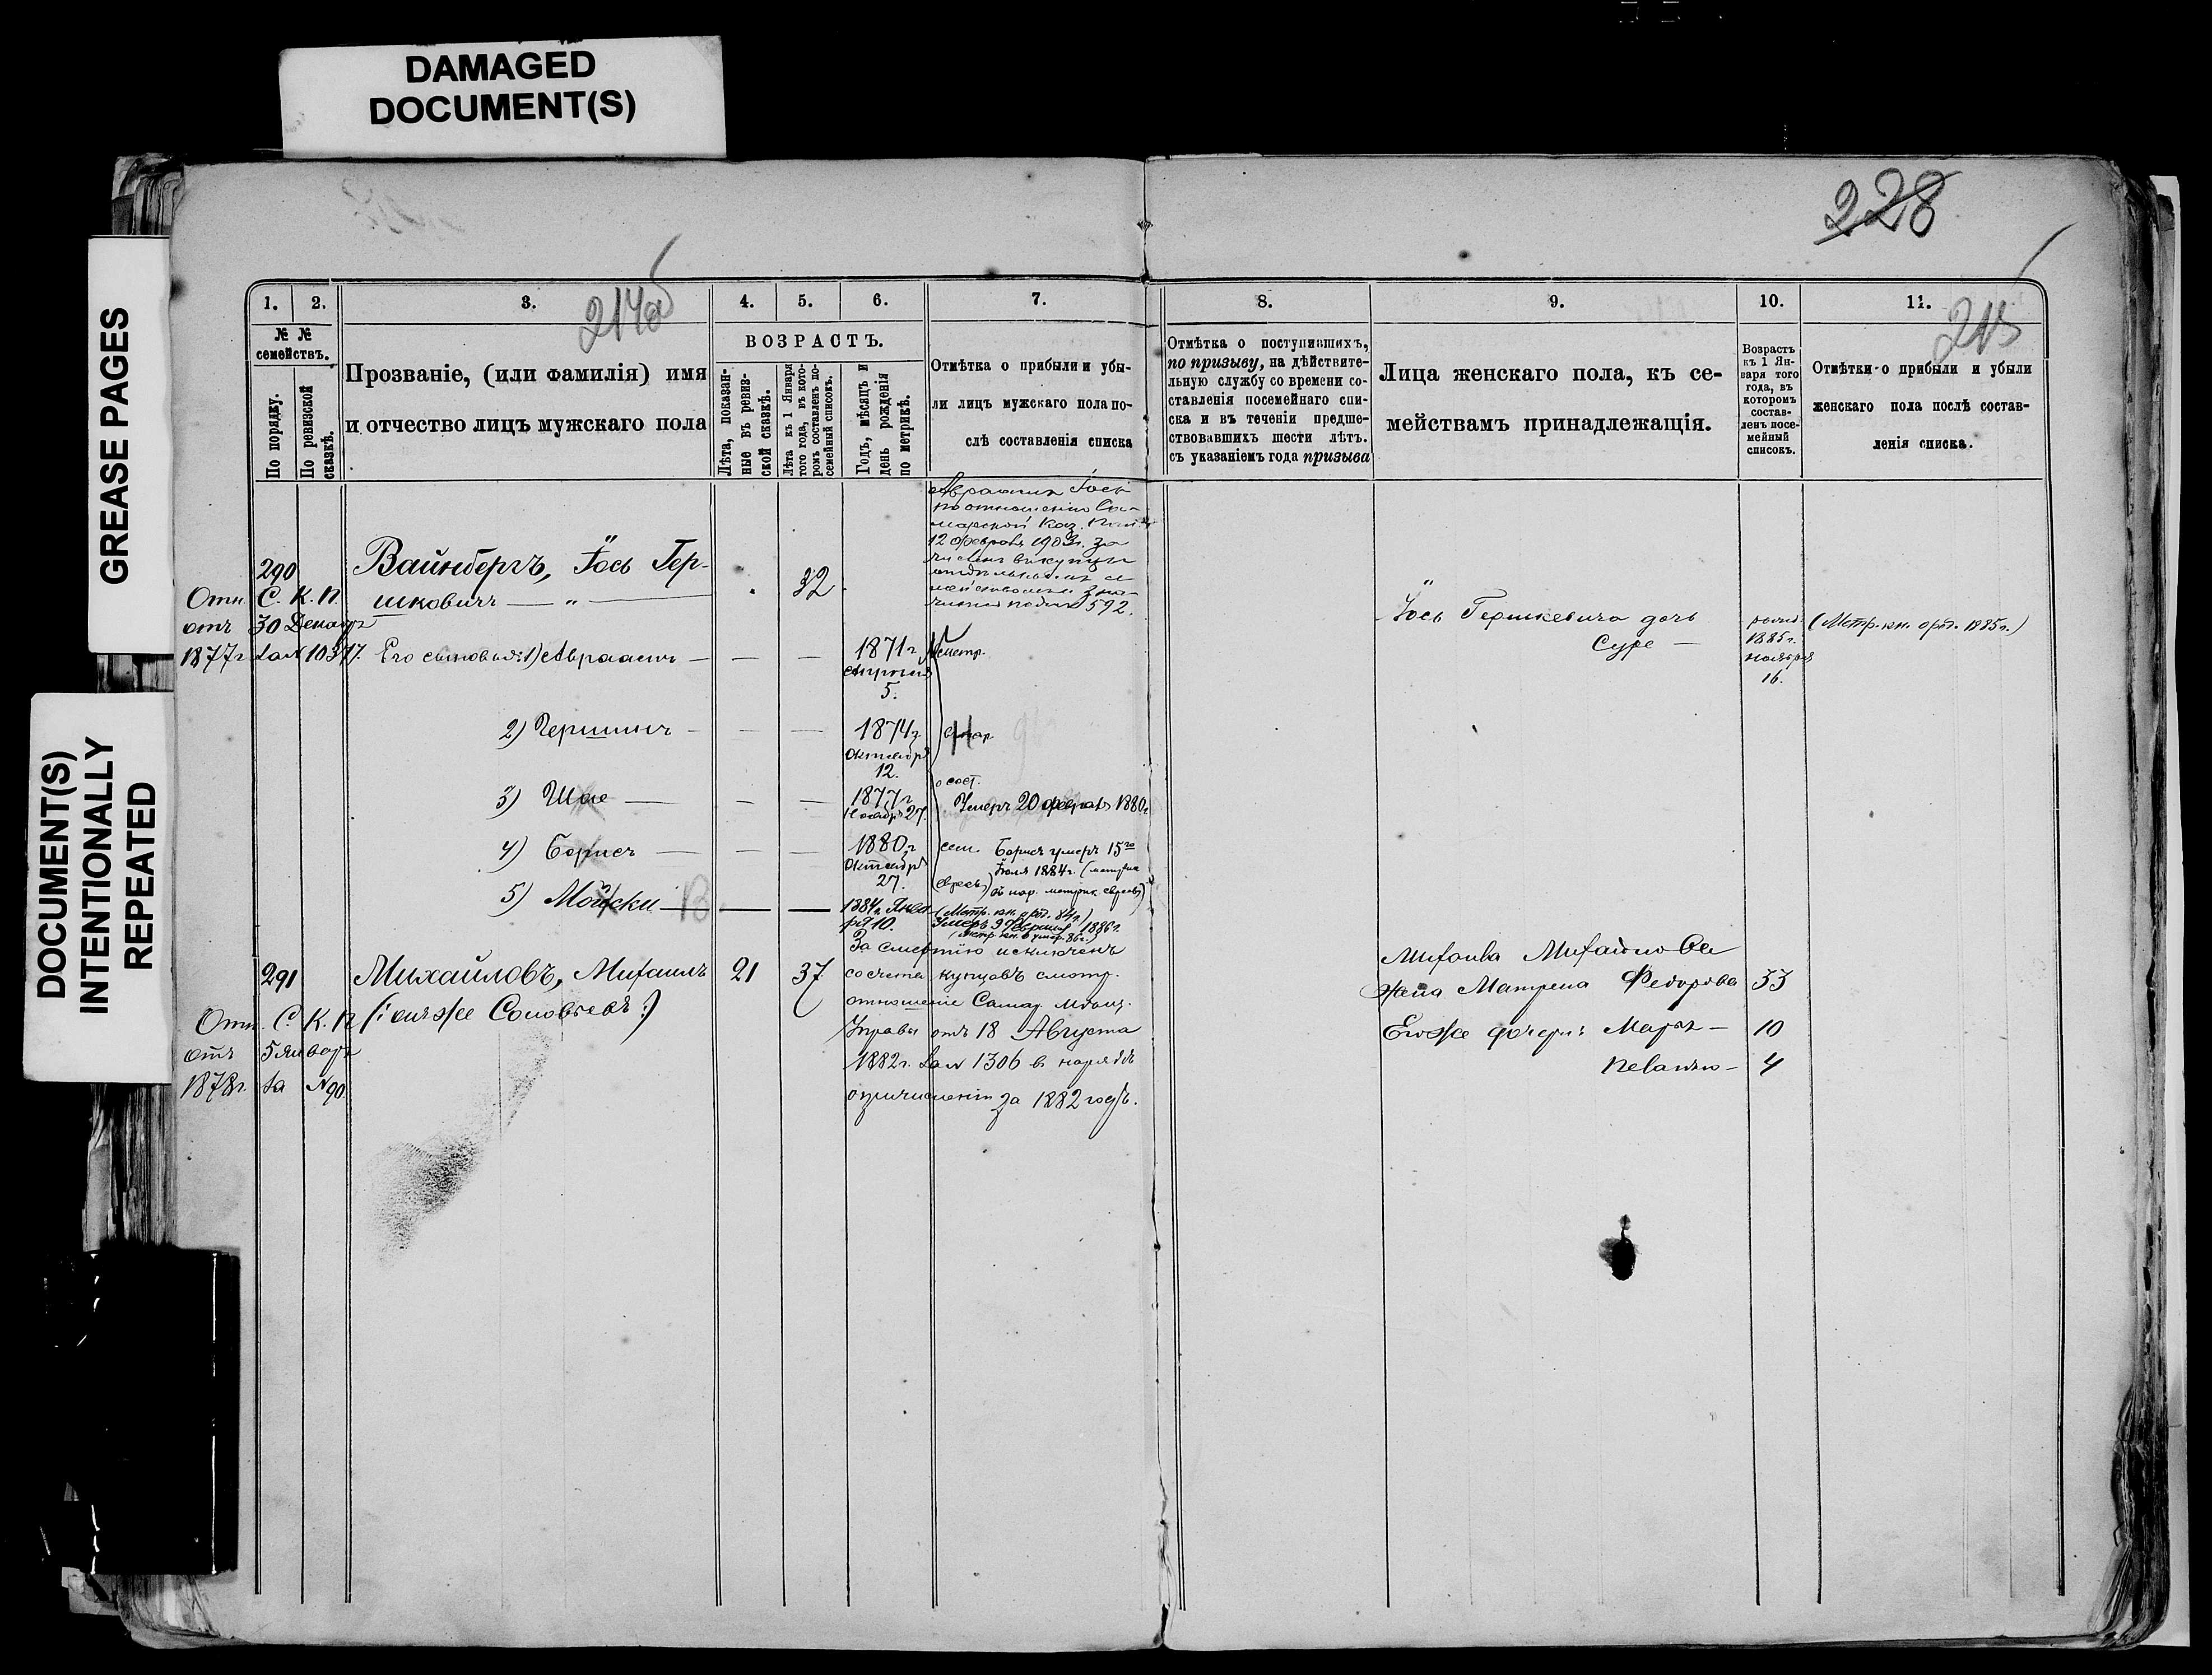 DAMAGED
DOCUMENT(S)
GREASE PAGES
DOCUMENT(S)
INTENTIONALLY
REPEATED
228
214об
215
1.
2.
3.
4.
5.
6.
7.
8.
9.
10.
11.
№ №
семействъ.
По порядку.
По ревизской
сказкѣ.
Прозваніе, (или фамилія) имя
и отчество лицъ мужскаго пола
ВОЗРАСТЪ.
Лѣта, показан-
ные въ ревиз-
ской сказкѣ.
Лѣта къ 1 Января
того года, въ кото-
ромъ составленъ по-
семейный списокъ.
Годъ, мѣсяцъ и
день рожденія
по метрикѣ.
Отмѣтка о прибыли и убы-
ли лицъ мужскаго пола по-
слѣ составленія списка
Отмѣтка о поступившихъ,
по призыву, на дѣйствите-
льную службу со времени со-
ставленія посемейнаго спи-
ска и въ теченіи предше-
ствовавшихъ шести лѣтъ.
съ указаніемъ года призыва
Лица женскаго пола, къ се-
мействамъ принадлежащія.
Возрастъ
къ 1 Ян-
варя того
года, въ
которомъ
состав-
ленъ посе-
мейный
списокъ.
Отмѣтки о прибыли и убыли
женскаго пола послѣ состав-
ленія списка.
290
Отн. С. К. П.
отъ 30 Декабр
1877г. за № 10377.
Вайнбергъ, Іось Гер-
шковичъ — „ —
32
по отношенію Са-
марской Каз. Пал.
12 февраля 1903г. за-
численъ въ купцы
отдѣльнымъ се-
мействомъ
592.
Его сыновья: 1) Авраамъ — — —
1871г.
Апрѣля
5.
2) Гершинъ — — —
1874г.
Октября
12.
3) Шае — — —
1877г.
Ноябрь 27.
Умеръ 20 февраля 1880г.
4) Борисъ — — —
1880г.
Октября
27.
Борисъ умеръ 15го
Іюля 1884г. (метрика
въ нар. метрик евреевъ)
5) Мойски — — —
1884г. Янва-
ря 10.
(Метр. кн. о род. 84г.)
Умеръ 9 1886г.
(Метр. кн. о умер. 86г.)
Іось Гершкевича дочь
Суре —
родил
1885г.
ноября
16.
(Метр. кн. о род. 1885г.)
291
Отн. С. К. П
отъ 5 январь
1878г. за № 90
Михайловъ, Михаилъ
(: онъ же Соловьевъ :)
21
37
За смертію исключенъ
со счета купцовъ смотр.
отношеніе Самар. Мѣщ.
Управы отъ 18 Августа
1882г. за № 1306 въ нарядѣ
о причисленіи за 1882 годъ.
Михаила Михайлова
жена Матрена Федорова 33
Его же дочери: Марья — 10
Пелагѣю — 4